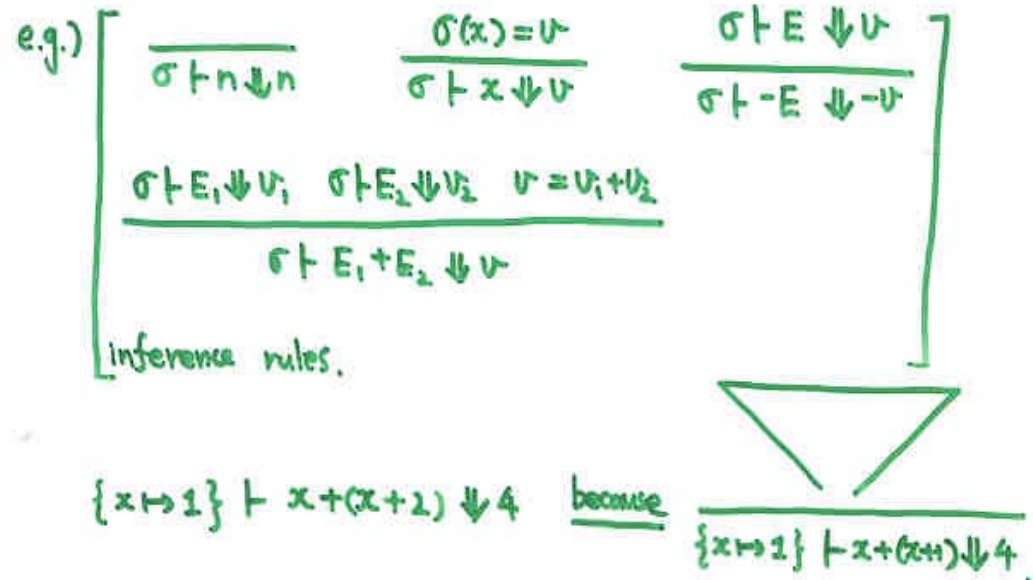 e.g.)
σ ⊢ n ⇓ n
σ(x) = v
σ ⊢ x ⇓ v
σ ⊢ E ⇓ v
σ ⊢ -E ⇓ -v
σ ⊢ E₁ ⇓ v₁ σ ⊢ E₂ ⇓ v₂ v = v₁ + v₂
σ ⊢ E₁ + E₂ ⇓ v
inference rules.
{x ↦ 1} ⊢ x + (x + 2) ⇓ 4 because
{x ↦ 1} ⊢ x + (x+1) ⇓ 4